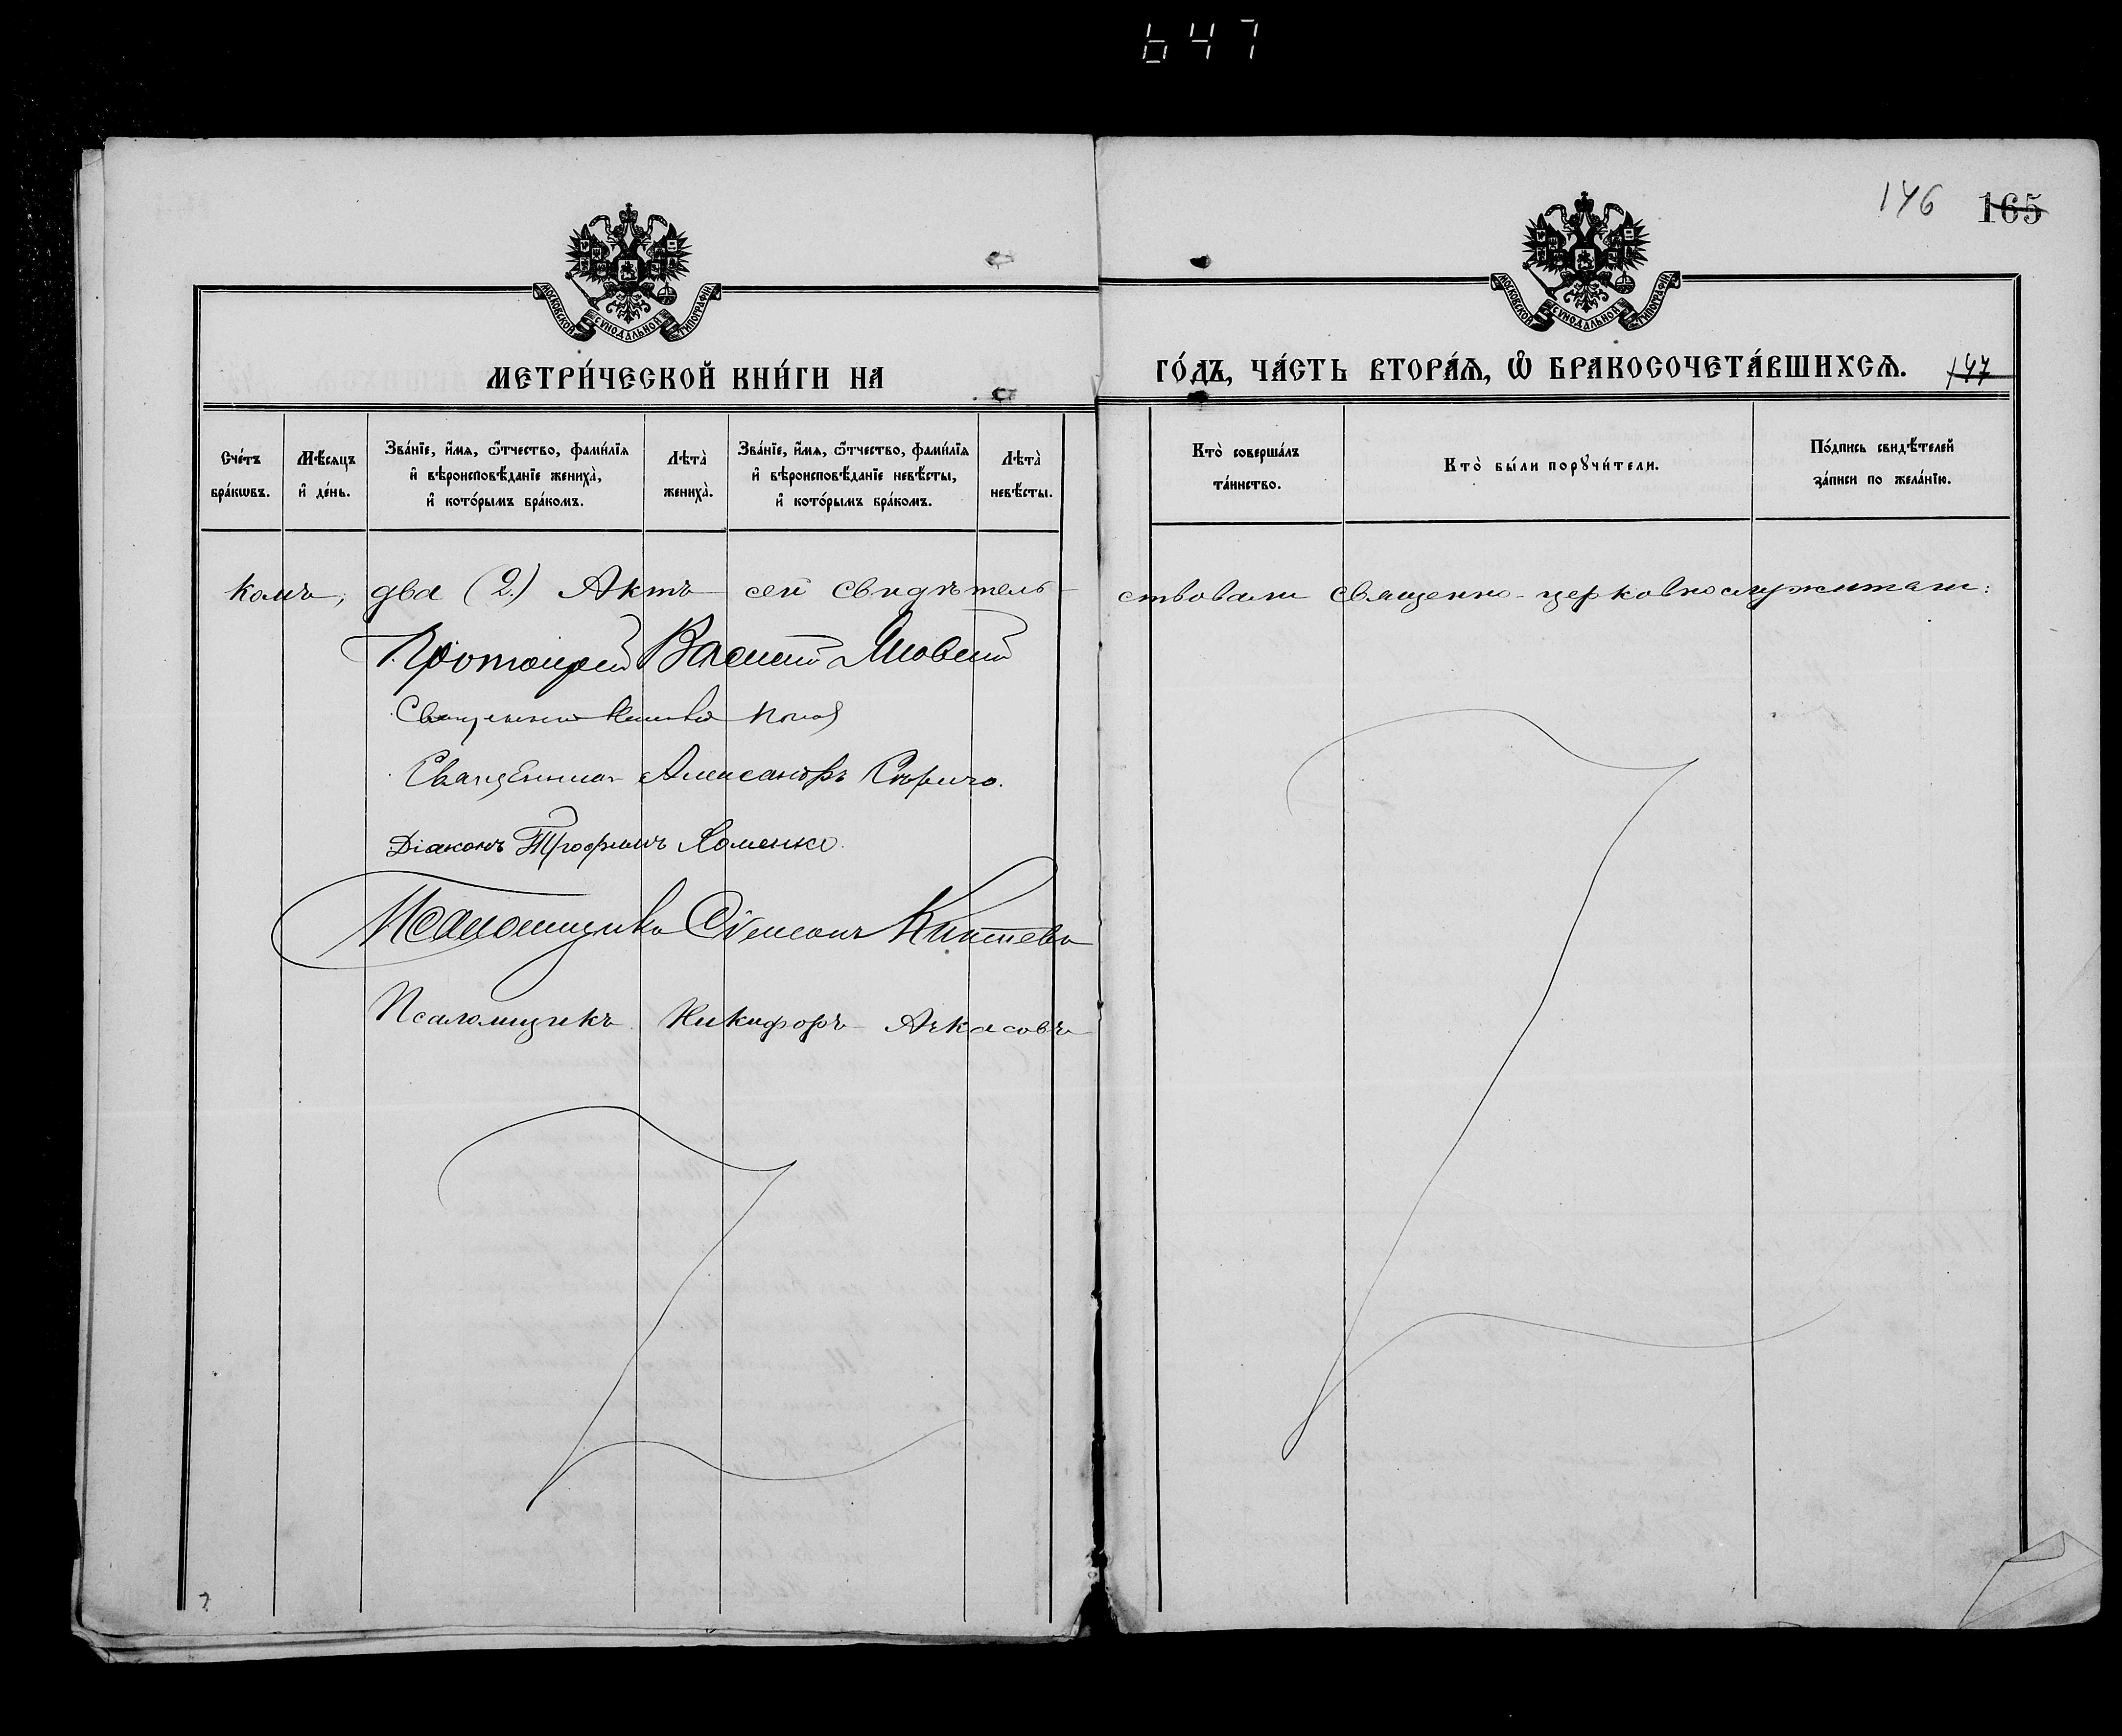 647
146 165
МОСКОВСКОЙ СѴНОДАЛЬНОЙ ТИПОГРАФІИ
МОСКОВСКОЙ СѴНОДАЛЬНОЙ ТИПОГРАФІИ
МЕТРИ́ЧЕСКОЙ КНИ́ГИ НА ГО́ДЪ, ЧА́СТЬ ВТОРА́Ѧ, Ѽ БРАКОСОЧЕТА́ВШИХСѦ. 147
Сче́тъ
бра́кѡвъ.
Мѣсяцъ
и҆ де́нь.
Зва́нїе, и҆́мя, ѻ҆́тчество, фами́лїя
и҆ вѣроисповѣ́данїе жениха̀,
и҆ кото́рымъ бра́комъ.
Лѣта̀
жениха̀.
Зва́нїе, и҆́мя, ѻ҆́тчество, фами́лїя
и҆ вѣроисповѣ́данїе невѣ́сты,
и҆ кото́рымъ бра́комъ.
Лѣта̀
невѣ́сты.
Кто̀ соверша́лъ
та́инство.
Кто̀ бы́ли порꙋчи́тели.
По́дпись свидѣ́телей
за́писи по жела́нїю.
комъ, два (2.) Актъ сей свидѣтельствовали священно-церковнослужители:
Протоіерей Василій
Священникъ
Священникъ Александръ
Діаконъ Трофимъ Хоменко.
Псаломщикъ Симеонъ
Псаломщикъ Никифоръ Аркасовъ